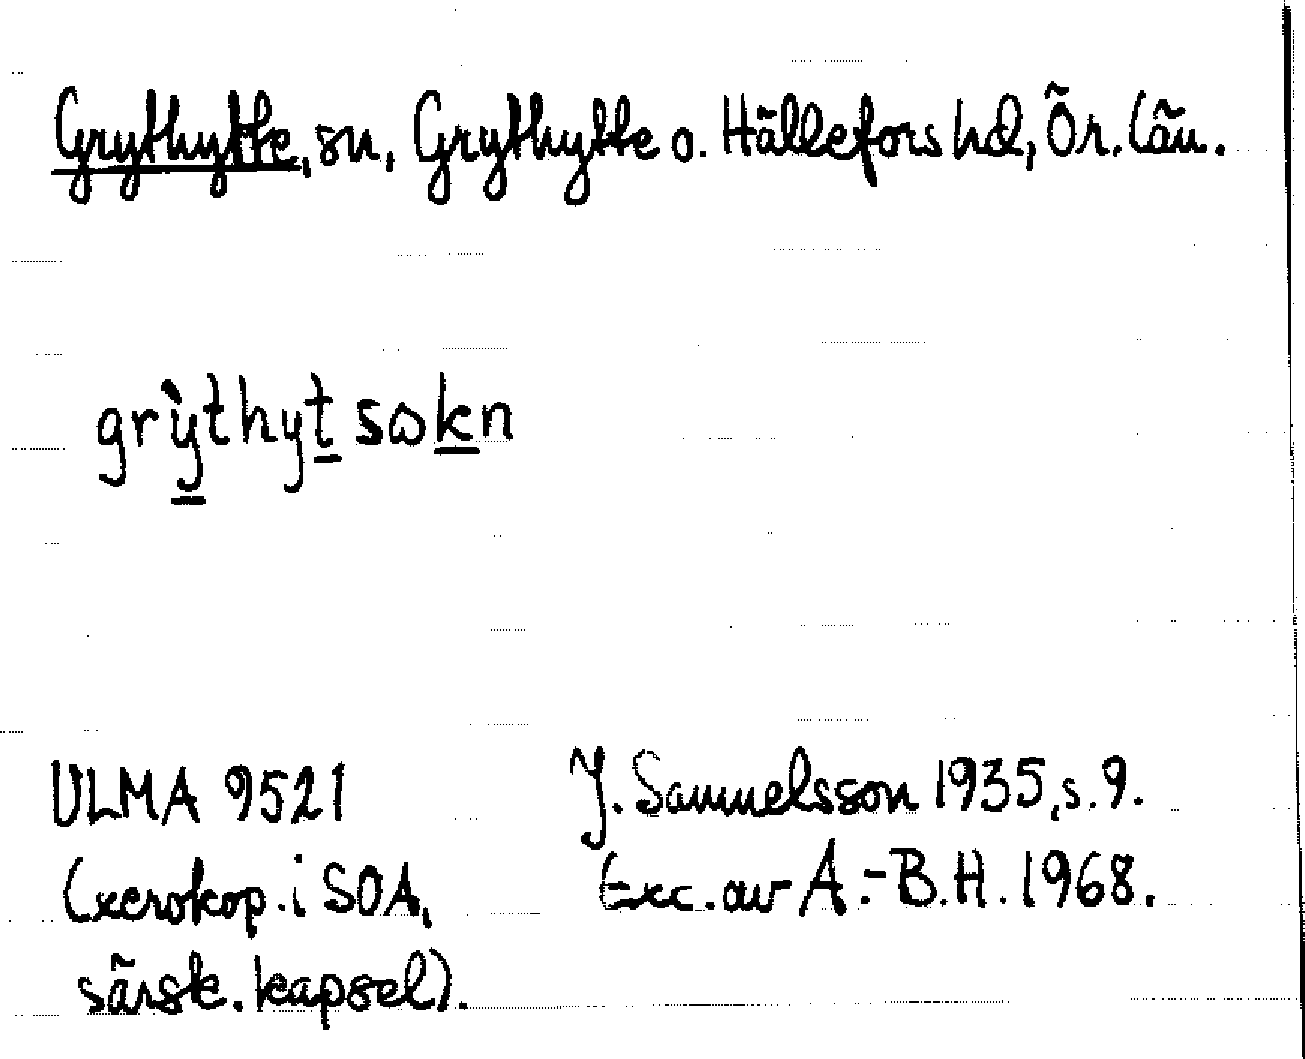 Grythytte, sn, Grythytte o. Hällefors hd, Ör. län.
grỳthyt sωkn
ULMA 9521
(xerokop. i SOA,
särsk. kapsel).
J. Sammelsson 1935, s. 9.
Exc. av A.-B.H. 1968.